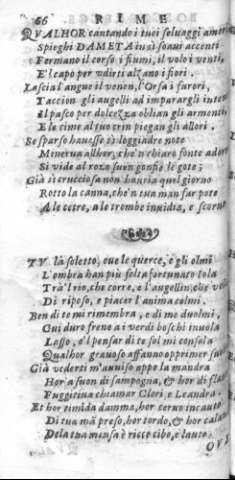 66 RIME
QVALHOR cantando i tuoi seluaggi amori
Spieghi DAMETA in sì soaui accenti
Fermano il corso i fiumi, il volo i venti,
E'l capo per vdirti alzano i fiori.
Lascia l'angue il venen, l'Orsa i furori,
Taccion gli augelli ad imparargli
Il pasco per dolcezza oblian gli armenti
E le cime al tuo crin piegan gli allori.
Se sparso hauesse sì leggiadre note
Minerua allhor, che'n chiaro fonte
Si vide al rozo suon gonfie le gote;
Già sì crucciosa non hauria quel giorno
Rotto la canna, che'n tua man far pote
A le cetre, a le trombe inuidia, e scorno
TV là soletto, oue le querce, e gli olmi
L'ombra han più folta fortunato Iola
Trà'l rio, che corre, e l'augellin, che vola
Di riposo, e piacer l'anima colmi.
Ben di te mi rimembra, e di me duolmi,
Cui duro freno a i verdi boschi inuola
Lesso, e'l pensar di te sol mi consola
Qualhor grauoso affanno opprimer suolmi
Già vederti m'auuiso appo la mandra
Hor'a suon di sampogna, & hor di
Fuggitiua chiamar Clori, e Leandra.
Et hor timida damma, hor ceruo incauto
Di tua mã preso, hor tordo, & hor
De la tua mensa è ricco cibo, e lauto.